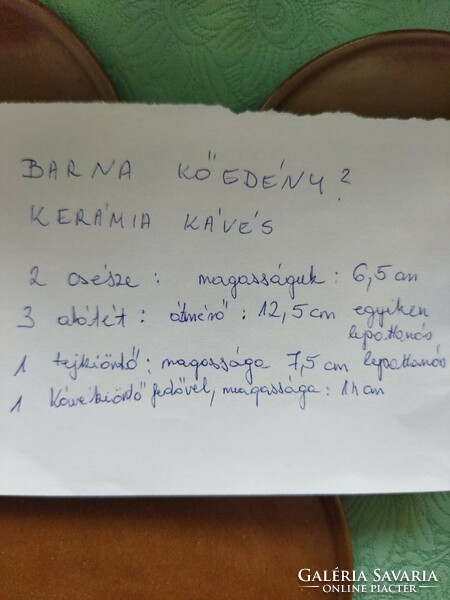 BARNA KŐEDÉNY?
KERÁMIA KÁVÉS
2 csésze: magasságuk: 6,5 cm
3 alátét: átmérő: 12,5 cm egyiken
lepattanás
1 tejkiöntő: magassága 7,5 cm lepattanás
1 Kávékiöntő fedővel, magassága: cm
GALÉRIA SAVARIA
ONLINE PIACTÉR